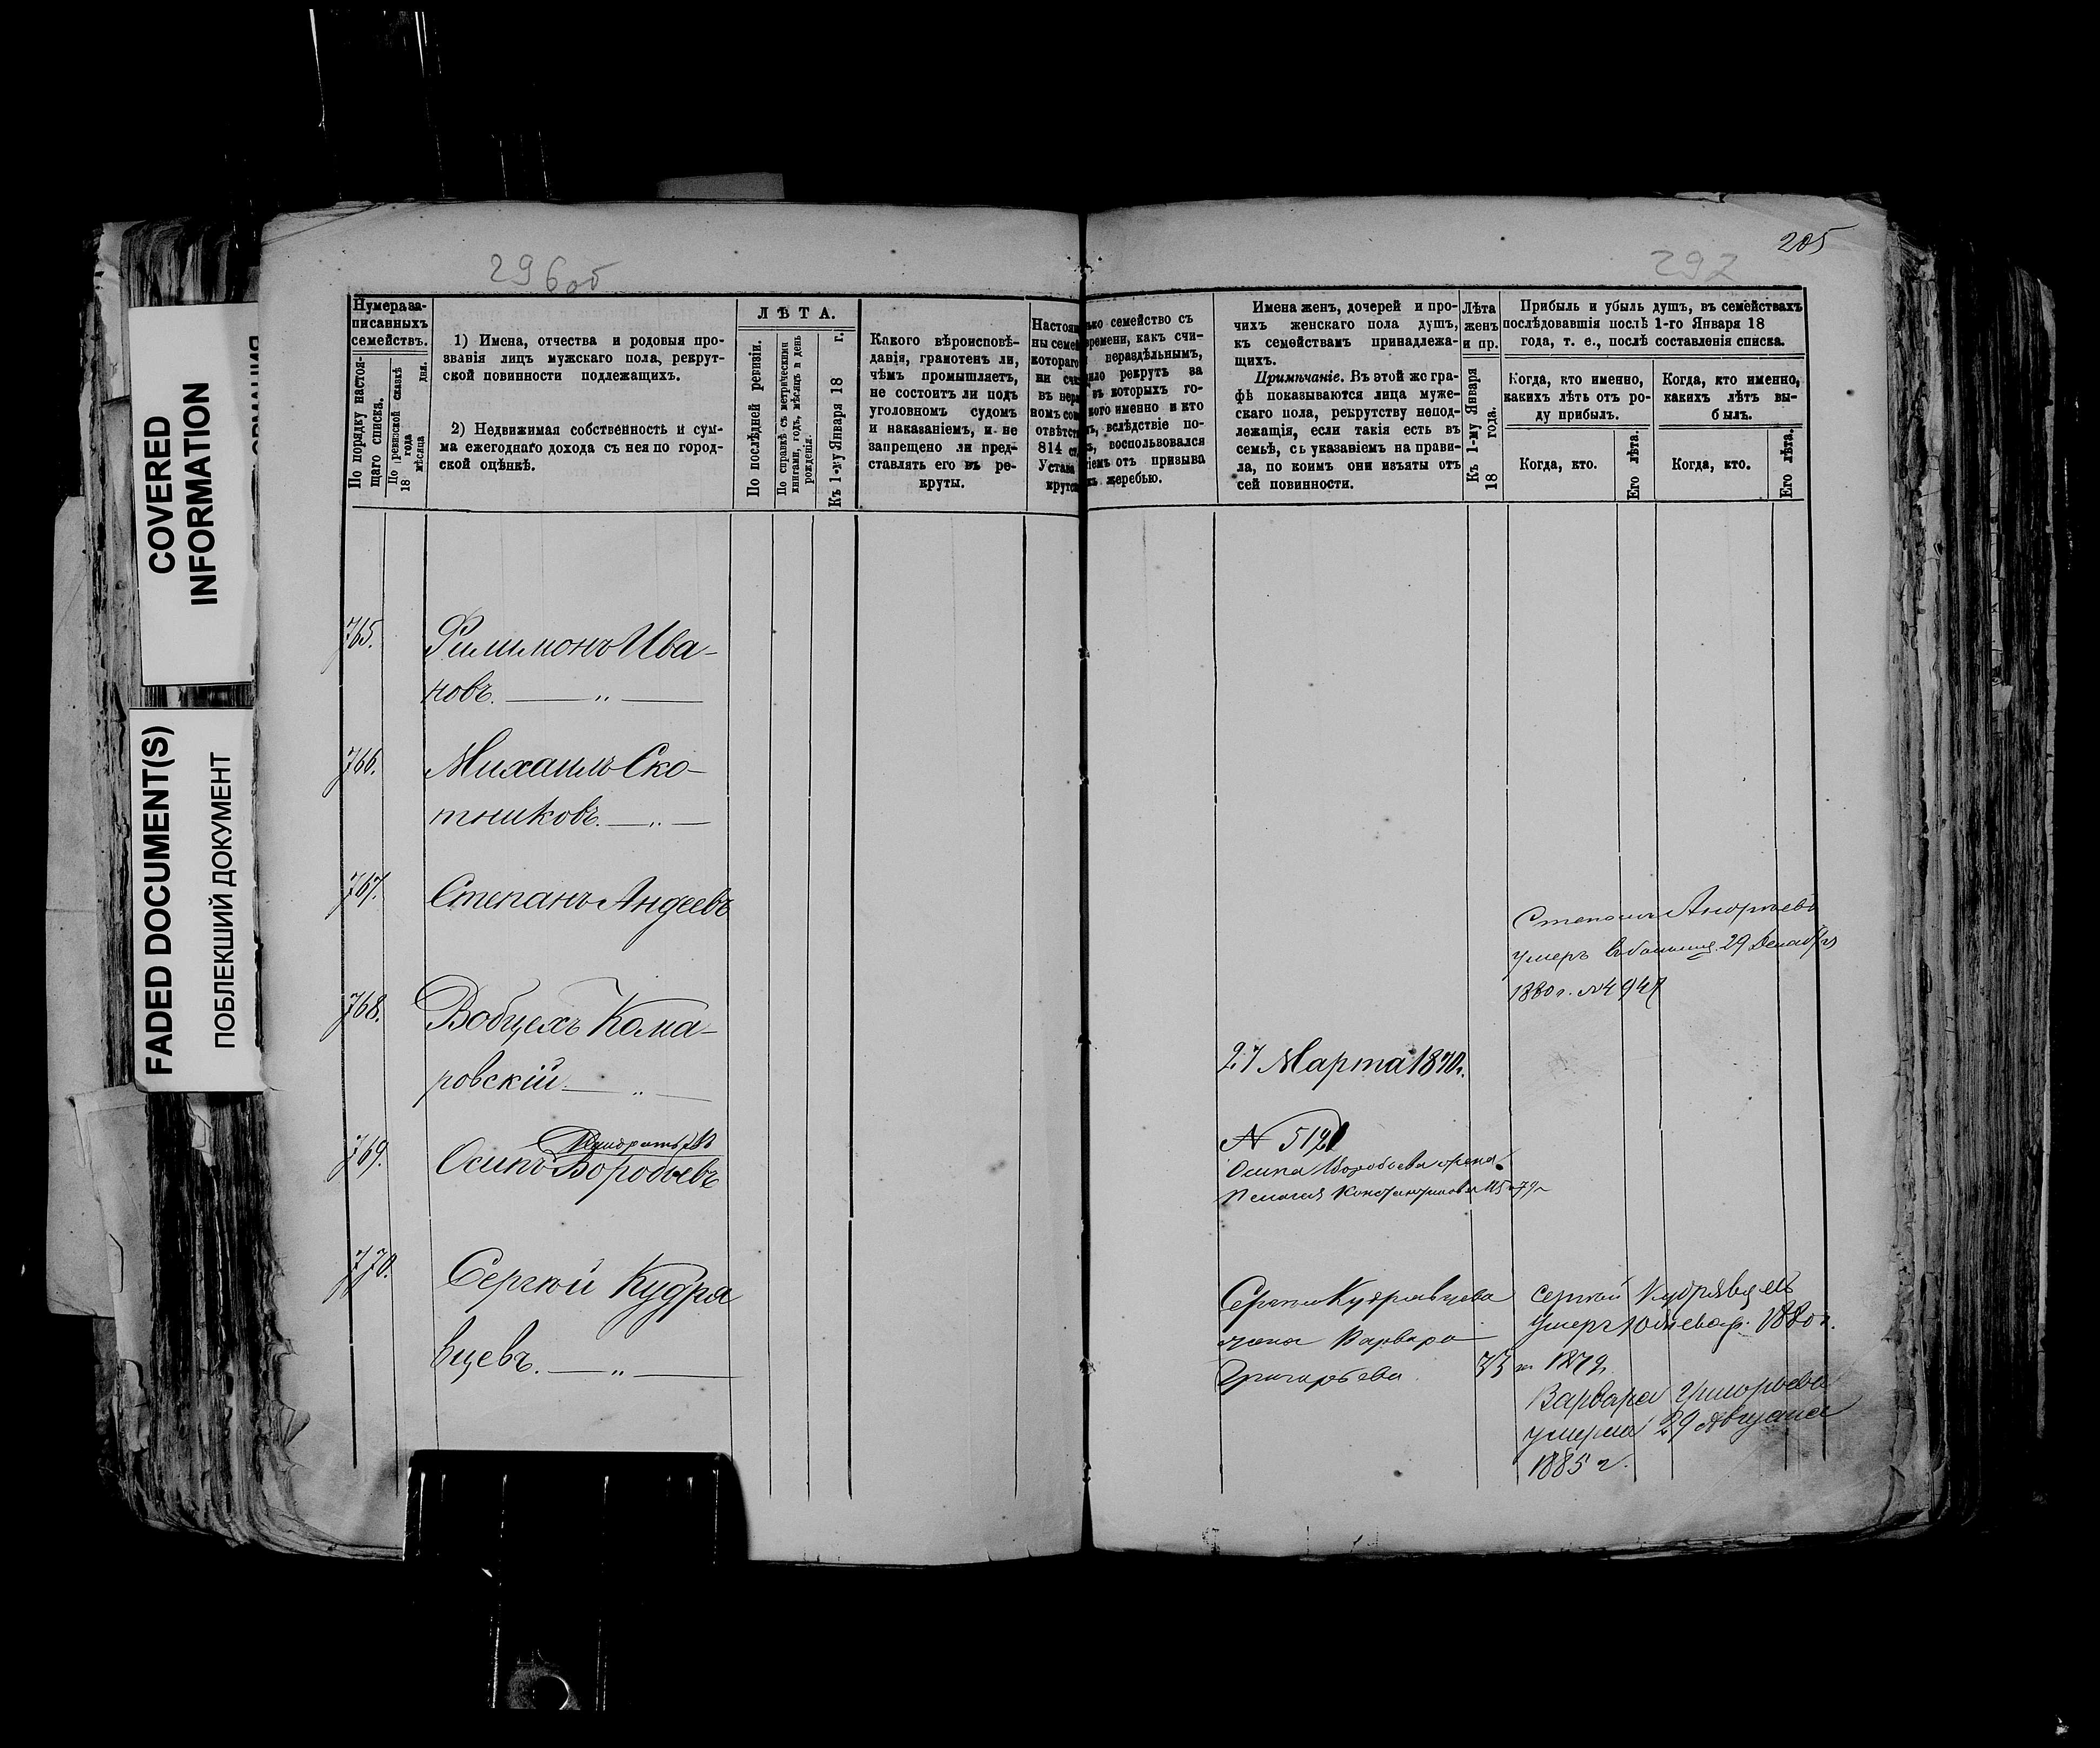 COVERED
INFORMATION
FADED DOCUMENT(S)
ПОБЛЕКШИЙ ДОКУМЕНТ
296 об
Нумера за-
писанныхъ
семействъ.
По порядку настоя-
щаго списка.
По ревизской сказкѣ
18 года
мѣсяца дня.
1) Имена, отчества и родовыя про-
званія лицъ мужскаго пола, рекрут-
ской повинности подлежащихъ.
2) Недвижимая собственность и сум-
ма ежегоднаго дохода съ нея по город-
ской оцѣнкѣ.
ЛѢТА.
По послѣдней ревизіи.
По справкѣ съ метрическими
книгами, годъ, мѣсяцъ и день
рожденія.
Къ 1-му Января 18 г.
Какого вѣроисповѣ-
данія, грамотенъ ли,
чѣмъ промышляетъ,
не состоитъ ли подъ
уголовномъ судомъ
и наказаніемъ, и не
запрещено ли пред-
ставлять его въ ре-
круты.
Настоя
ны семе
котораго
ни сч
въ нер
номъ со
отвѣтст
814 ст.
Устава
крутс
765.
Филимонъ Ива-
новъ. — „ —
766.
Михаилъ Ско-
тниковъ. — „ —
767.
Степанъ Андеевъ
768.
Войцехъ Кома-
ровскій — „ —
769.
Осипъ Воробьевъ
770.
Сергѣй Кудря
вцевъ. — „ —
205
297
ько семейство съ
времени, какъ счи-
нераздѣльнымъ,
ило рекрутъ за
въ которыхъ го-
кого именно и кто
ъ, вслѣдствіе по-
, воспользовался
іемъ отъ призыва
къ жеребью.
Имена женъ, дочерей и про-
чихъ женскаго пола душъ,
къ семействамъ принадлежа-
щихъ.
Примѣчаніе. Въ этой же гра-
фѣ показываются лица муже-
скаго пола, рекрутству непод-
лежащія, если такія есть въ
семьѣ, съ указаніемъ на прави-
ла, по коимъ они изъяты отъ
сей повинности.
Лѣта
женъ
и пр.
Къ 1-му Января
18 года.
Прибыль и убыль душъ, въ семействахъ
послѣдовавшія послѣ 1-го Января 18
года, т. е., послѣ составленія списка.
Когда, кто именно,
какихъ лѣтъ отъ ро-
ду прибылъ.
Когда, кто.
Его лѣта.
Когда, кто именно,
какихъ лѣтъ вы-
былъ.
Когда, кто.
Его лѣта.
Степанъ Андреевъ
умеръ 29 Декабря
1880 г. № 4947
27 Марта 1870 г.
№ 5121
Осипа Воробьева жена
Пелагия Константинова
Сергѣя Кудрявцева
жена Варвара
Григорьева 33
1879 г.
Сергѣй Кудрявцевъ
умеръ 10 Января 1880 г.
Варвара Григорьева
умерла 29 Августа
1885 г.